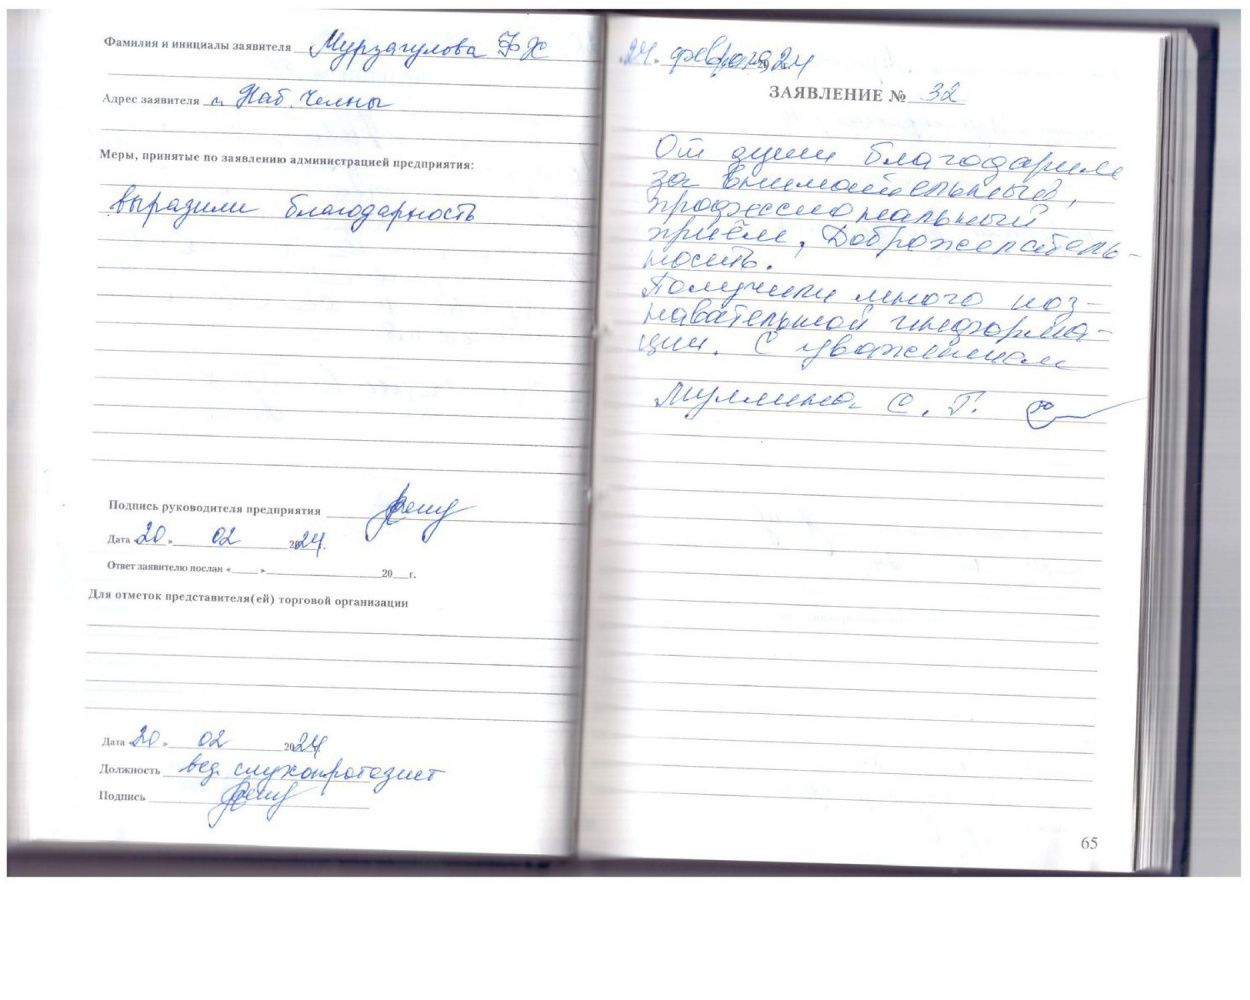 Фамилия и инициалы заявителя Мурзагулова Ф Х
Адрес заявителя г. Наб. Челны
Меры, принятые по заявлению администрацией предприятия:
выразили благодарность
Подпись руководителя предприятия
Дата «20» 02 2024
Ответ заявителю послан «____» ____ 20___г.
Для отметок представителя(ей) торговой организации
Дата «20» 02 2024
Должность вед. слухопротезист
Подпись
24. февраля 24
ЗАЯВЛЕНИЕ № 32
От души благодарим
за внимательный,
профессиональный
приём, Доброжелатель-
ность.
Получили много поз-
навательной информа-
ции. С уважением
Муллина С. Г.
65